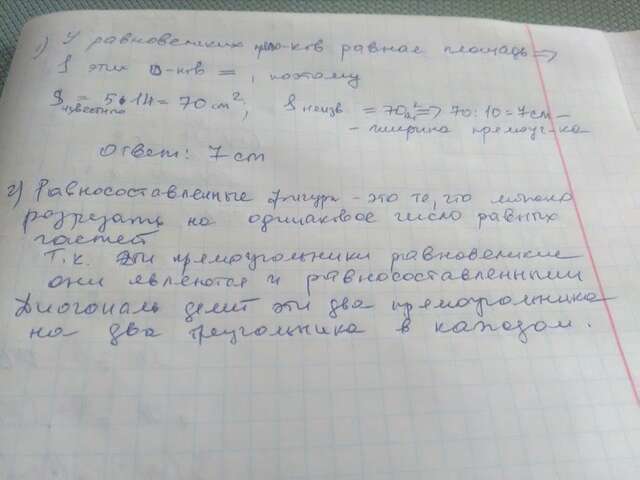 1) У равновеликих прям-ков равная площадь =>
S этих п-ков = , поэтому
S известно = 5·14 = 70 см²; S неизв. = 70 см² => 70 : 10 = 7 см -
- ширина прямоуг-ка
Ответ: 7 см
2) Равносоставленные фигуры - это те, что можно
разрезать на одинаковое число равных
частей
Т.к. эти прямоугольники равновеликие
они являются и равносоставленными
Диогональ делит эти два прямоугольника
на два треугольника в каждом.